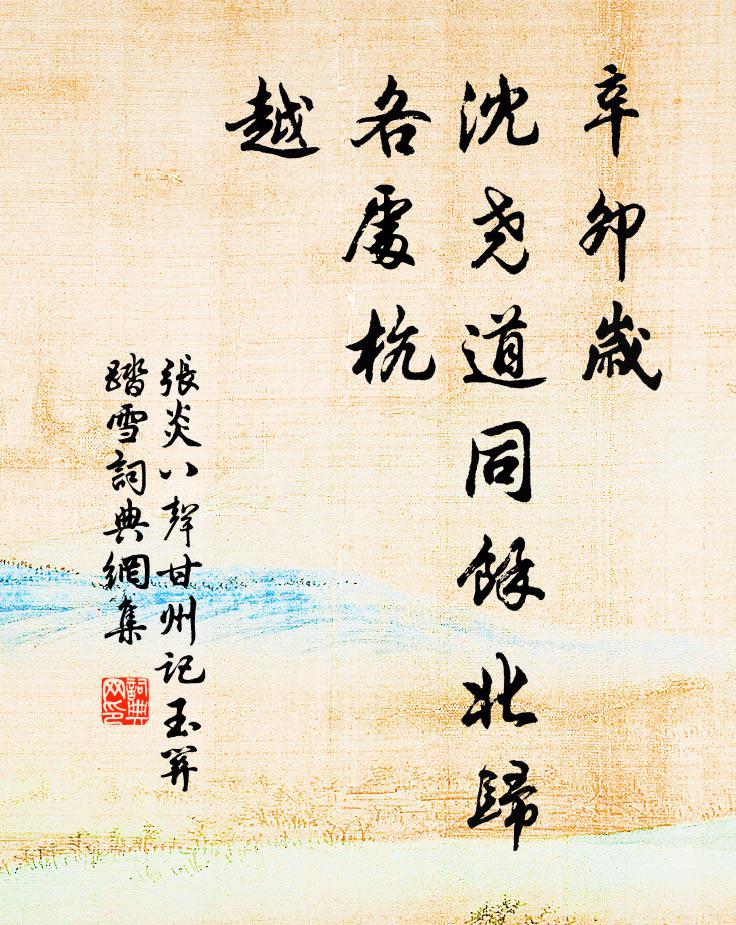 辛卯歲
沈尧道同餘北歸
各處杭
越
張炎八聲甘州記玉關
踏雪詞典網集
詞典
网印